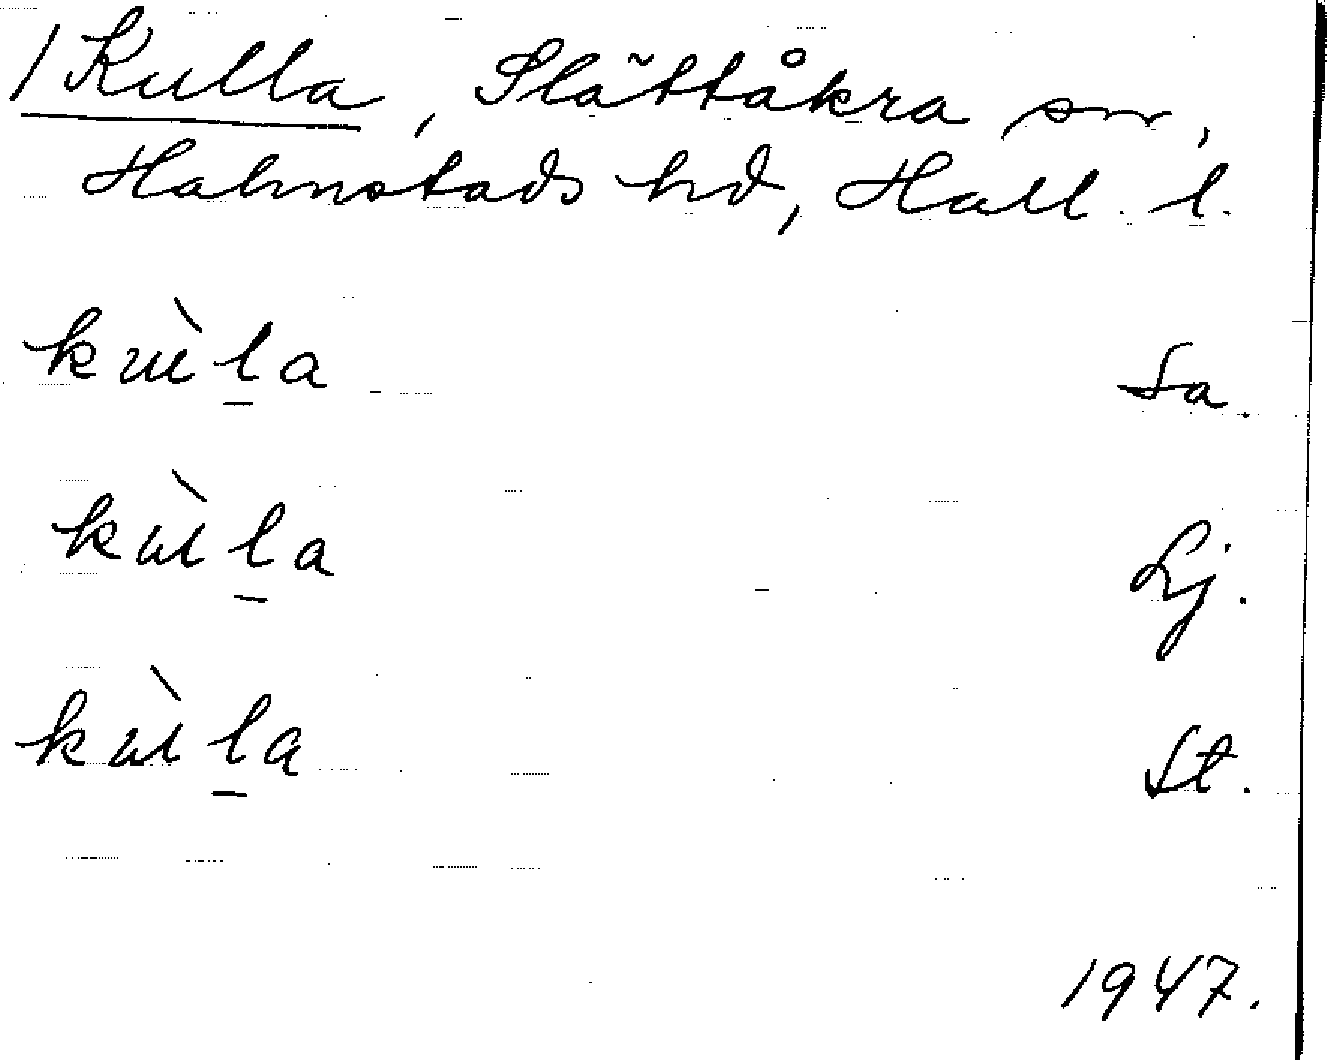 1 Kulla, Slättåkra sn,
Halmstads hd, Hall. l.
kùl̲a Sa.
kùl̲a Lj.
kùl̲a St.
1947.